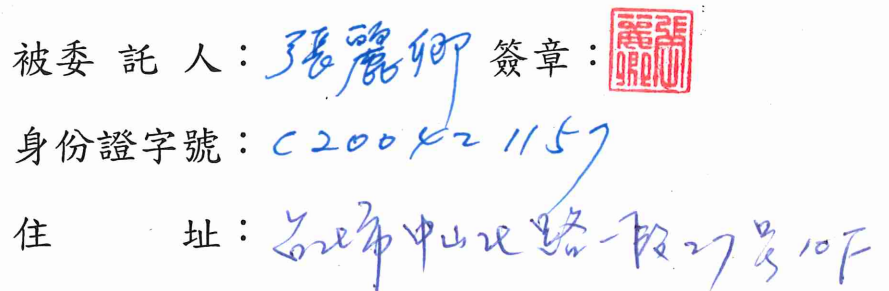 被委託人：張麗卿 簽章：張麗卿
身份證字號：C200421157
住址：台北市中山北路一段27号10F